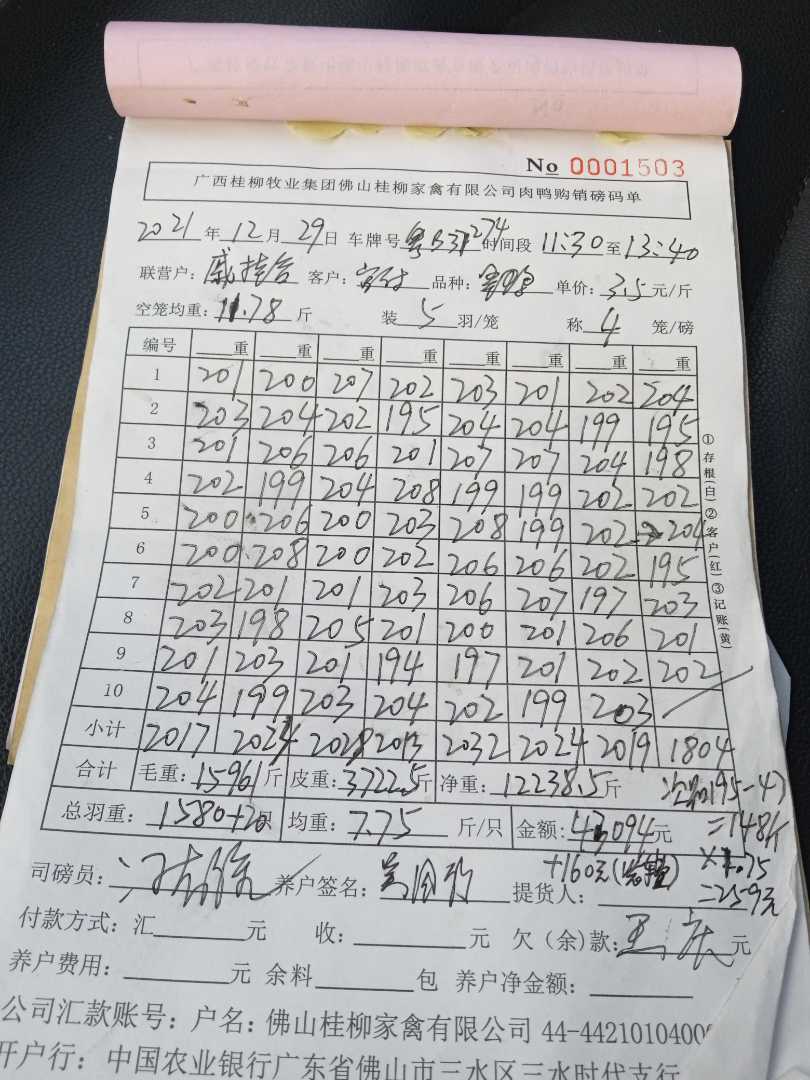 No 0001503
广西桂柳牧业集团佛山桂柳家禽有限公司肉鸭购销磅码单
2021年12月29日 车牌号 274 时间段 11:30至13:40
联营户: 客户: 品种: 单价:3.5元/斤
空笼均重:11.78斤 装5羽/笼 称4笼/磅
编号 重 重 重 重 重 重 重 重
1 201 200 207 202 203 201 202 204
2 203 204 202 195 204 204 199 195
3 201 206 206 201 207 207 204 198
4 202 199 204 208 199 199 202 202
5 200 206 200 203 208 199 202 204
6 200 208 200 202 206 206 202 195
7 202 201 201 203 206 207 197 203
8 203 198 205 201 200 201 206 201
9 201 203 201 194 197 201 202 202
10 204 199 203 204 202 199 203
小计 2017 2024 2028 2013 2032 2024 2019 1804
合计 毛重:15961斤 皮重:3722.5斤 净重:12238.5斤
195-47
总羽重:1580+20只 均重:7.75斤/只 金额:43094元
=148斤
+160元
×1.75
=259元
司磅员: 养户签名: 提货人:
付款方式:汇 元 收: 元 欠(余)款: 元
养户费用: 元 余料 包 养户净金额:
公司汇款账号:户名:佛山桂柳家禽有限公司 44-44210104000
开户行:中国农业银行广东省佛山市三水区三水时代支行
①存根(白)②客户(红)③记账(黄)